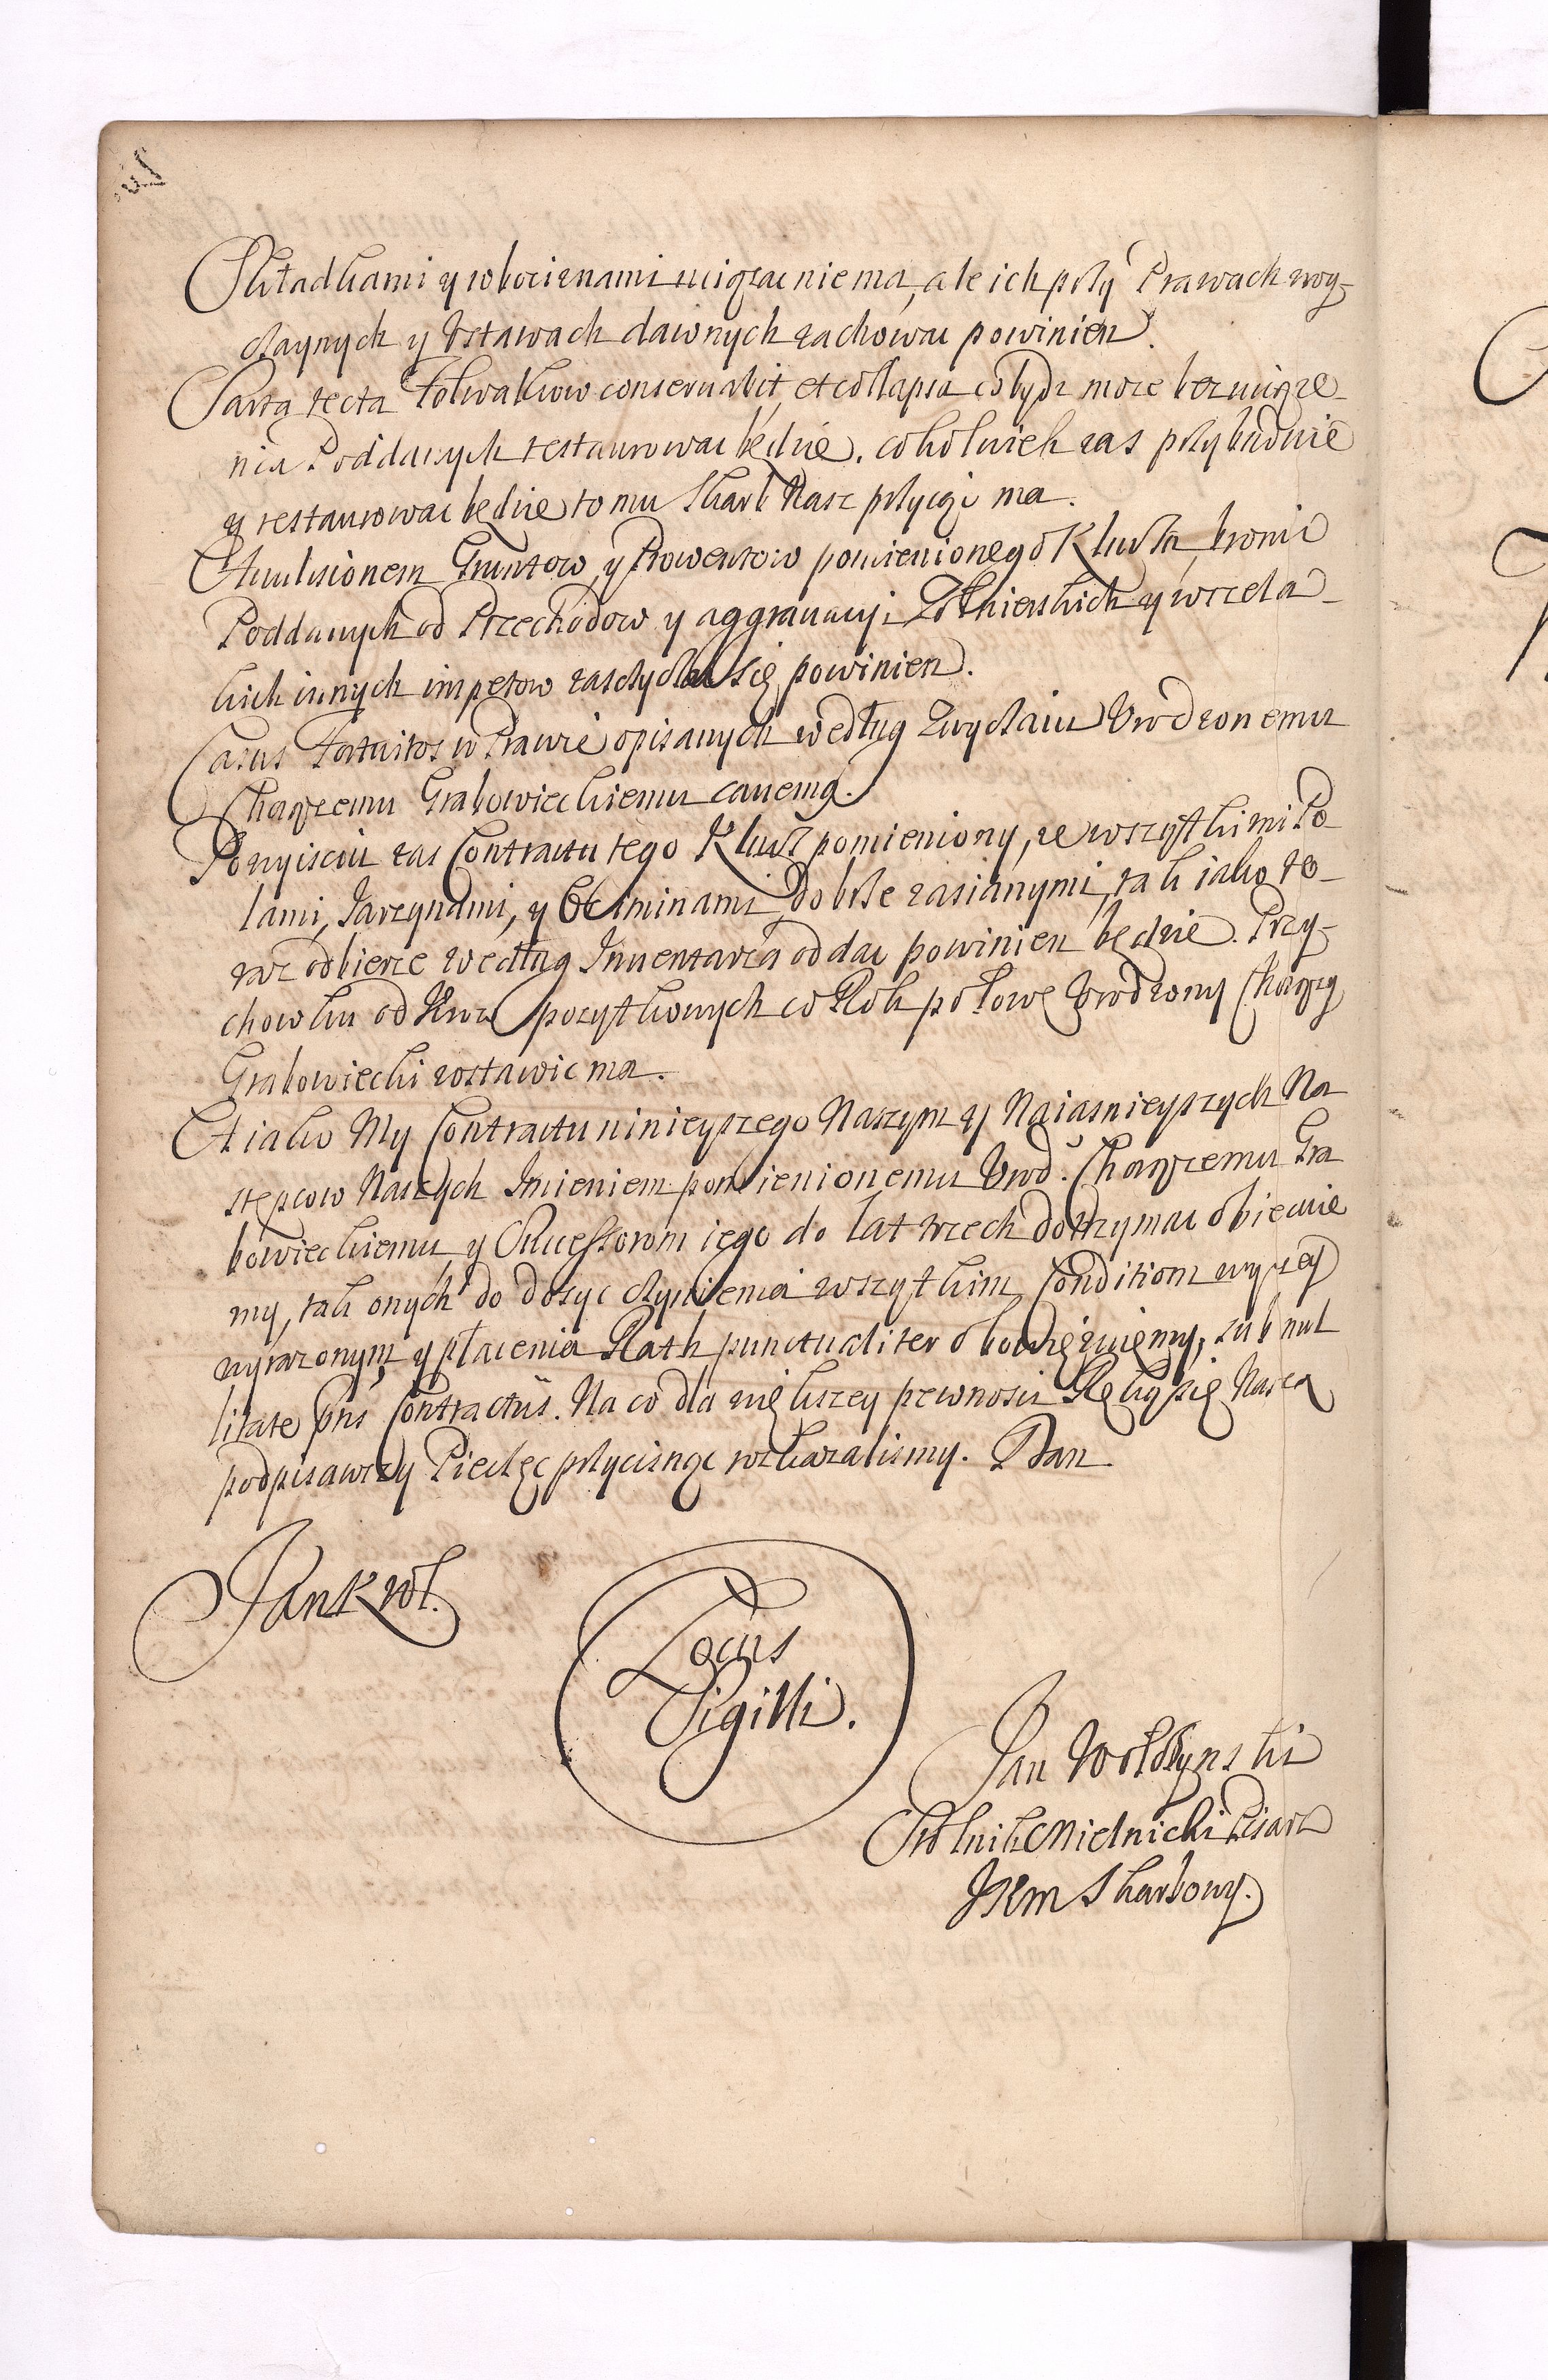 Składkami y robociznami uciązac nie ma, ale ich przy Prawach zwy-
czaynych y Vstawach dawnych zachowac powinien.
Sarta tecta Folwarkow conservabit, et collapsa co bydz moze bez uciąze-
nia Poddanych restaurowac będzie. cokolwiek zas przybuduie
y restaurowac będzie to mu Skarb Nasz przyiąc ma.
Avulsionem Gruntow, y Prowentow pomienionego Klucza, bronic
Poddanych od Przechodow y aggravacyi Zołnierskich y wszela-
kich innych impetow zasczycac się powinien.
Casus Fortuitos w Prawie opisanych według Zwyczaiu Vrodzonemu
Chorązemu Grabowieckiemu cavemą.
Po wyisciu zas Contractu tego Klucz pomieniony, ze wszystkimi Po-
lami, Jarzynami, y Oziminami dobrze zasianymi, tak iako te-
raz odbierze według Inventarza oddac powinien będzie. Przy-
chowku od Krow pozytkowych co Rok połowę Vrodzony Chorązy
Grabowiecki zostawic ma.
A iako My Contractu ninieyszego Naszym y Naiasnieyszych Na
stępcow Naszych Imieniem pomienionemu Vrod. Chorązemu Gra
bowieckiemu y Successorom iego do lat trzech dotrzymac obiecuie
my, tak onych do dosyc czynienia wszystkim Conditiom wyzey
wyrazonym, y płacenia Rath punctualiter obowięzuiemy, sub nul
litate pntis Contractus. Na co dla większey pewnosci Ręką się Naszą
podpisawszy Pieczęc przycisnąc rozkazalismy. Dan
Jan Krol.
Locus
Sigilli.
Jan Wołczynski
Stolnik Mielnicki Pisarz
JKM Skarbowy.